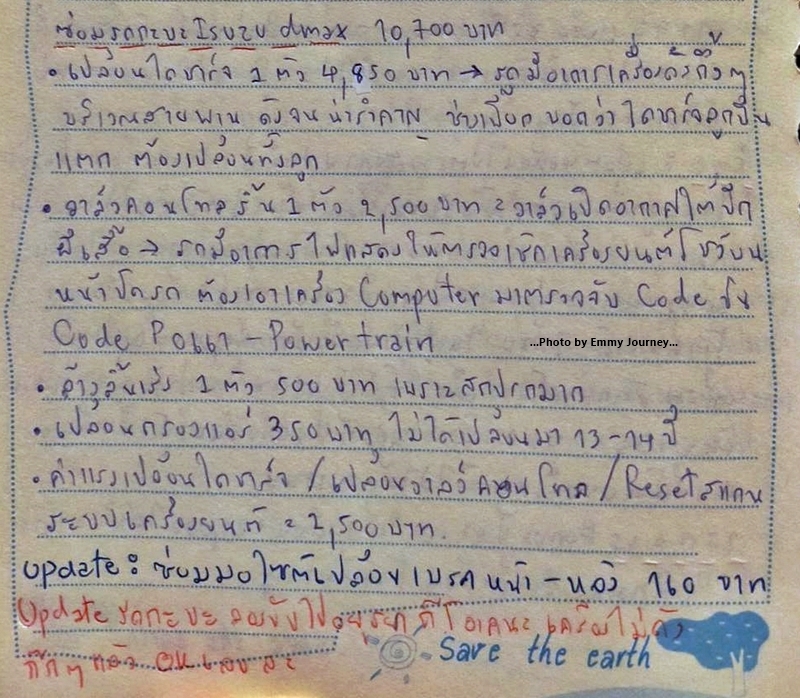 ซ่อมรถกะบะ Isuzu dmax 10,700 บาท
• เปลี่ยนไดชาร์จ 1 ตัว 4,850 บาท → รถมีอาการเครื่องดังกิ๊งๆ
บริเวณสายพาน ดังจนน่ารำคาญ ช่างเปี๊ยก บอกว่า ไดชาร์จลูกปืน
แตก ต้องเปลี่ยนทั้งลูก
• วาล์วคอนโทลลิ้น 1 ตัว 2,500 บาท = วาล์วเปิดอากาศใต้ปีก
ผีเสื้อ → รถมีอาการ ไฟแสดงให้ตรวจเช็กเครื่องยนต์โชว์บน
หน้าปัดรถ ต้องเอาเครื่อง Computer มาตรวจจับ Code ขึ้น
Code P0661 - Powertrain
...Photo by Emmy Journey...
• ล้างลิ้นเร่ง 1 ตัว 500 บาท เพราะสกปรกมาก
• เปลี่ยนกรองแอร์ 350 บาท ไม่ได้เปลี่ยนมา 13-14 ปี
• ค่าแรงเปลี่ยนไดชาร์จ / เปลี่ยนวาล์วคอนโทล / Reset สแกน
ระบบเครื่องยนต์ = 2,500 บาท.
Update : ซ่อมมอไซต์เปลี่ยนเบรคหน้า - หลัง 160 บาท
Update รถกะบะ ลองขับไปอยุธยา ก็โอเคนะ เครื่องไม่ดัง
กิ๊กๆ แล้ว OK เลยล่ะ
Save the earth